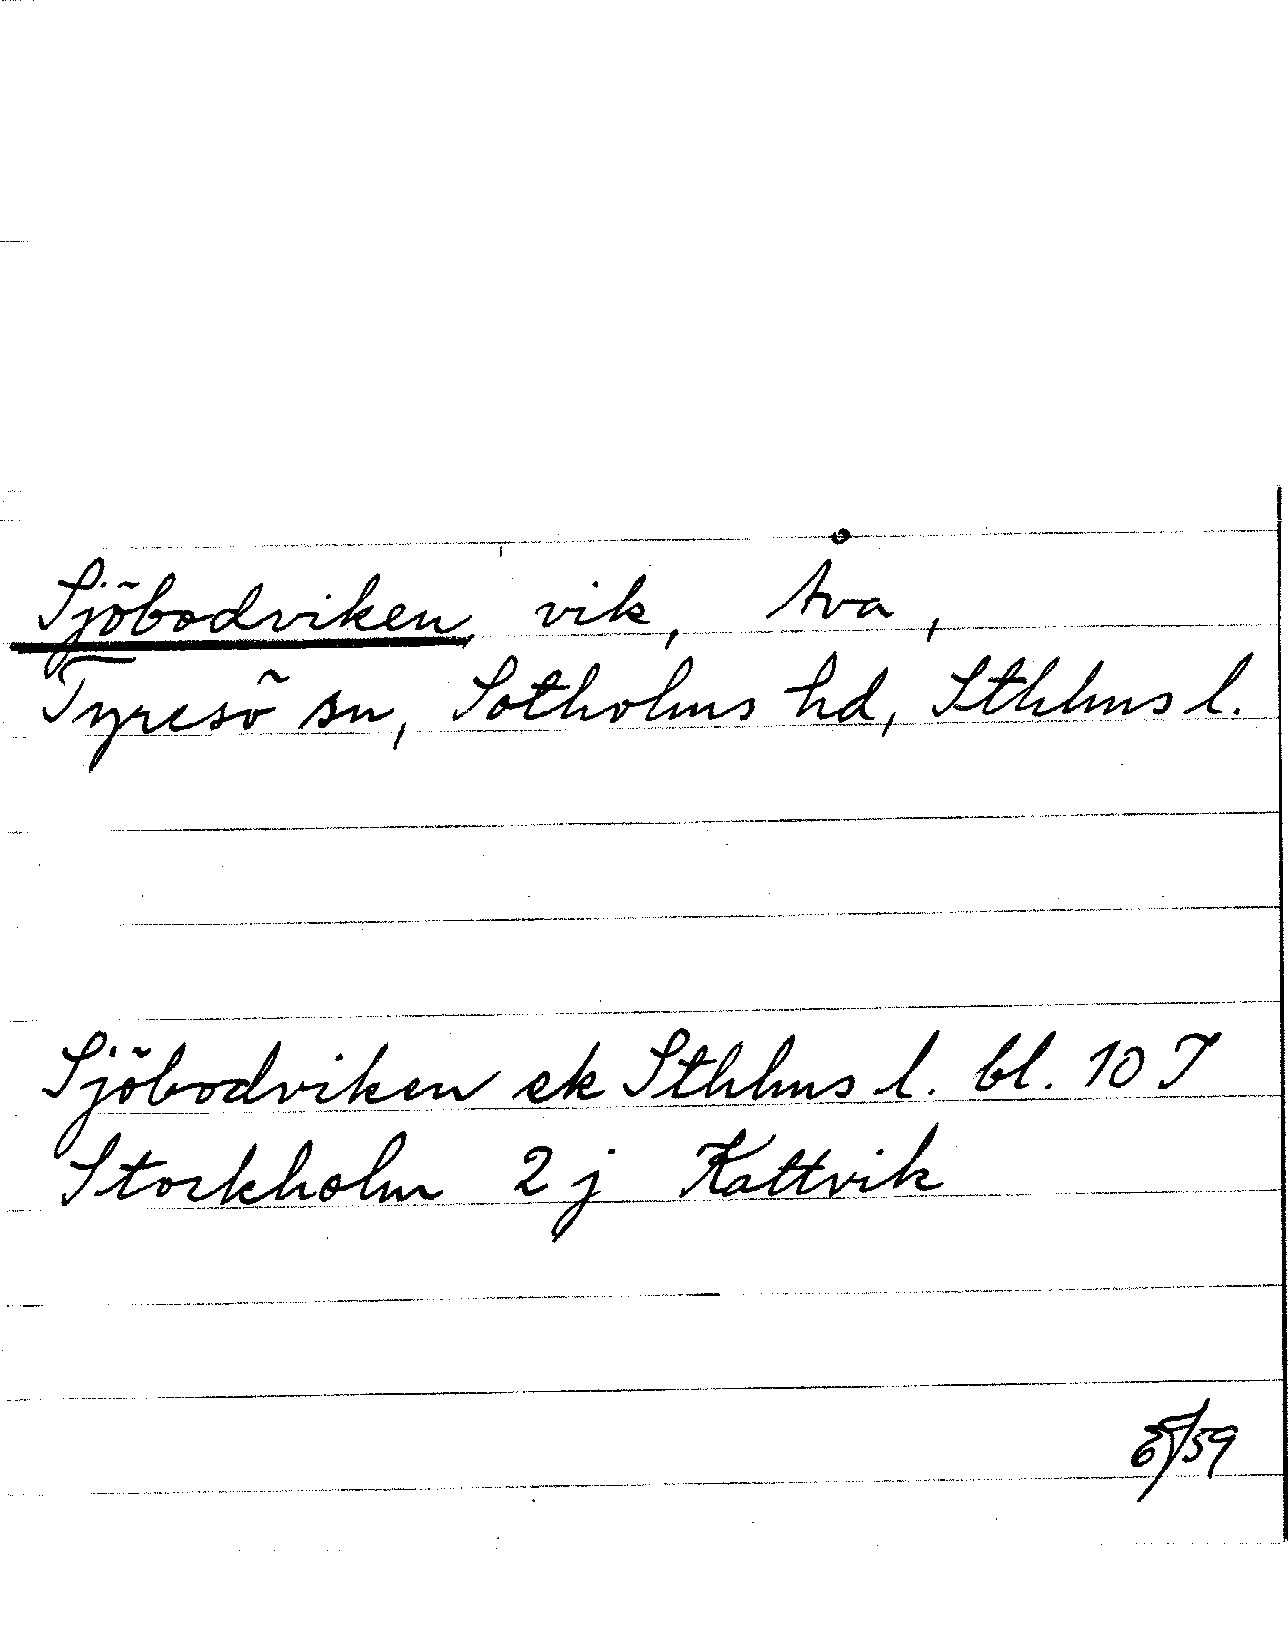 Sjöbodviken, vik, Åva,
Tyresö sn, Sotholms hd, Sthlms l.
Sjöbodviken ek Sthlms l. bl. 10 I
Stockholm 2 j Kattvik
/59